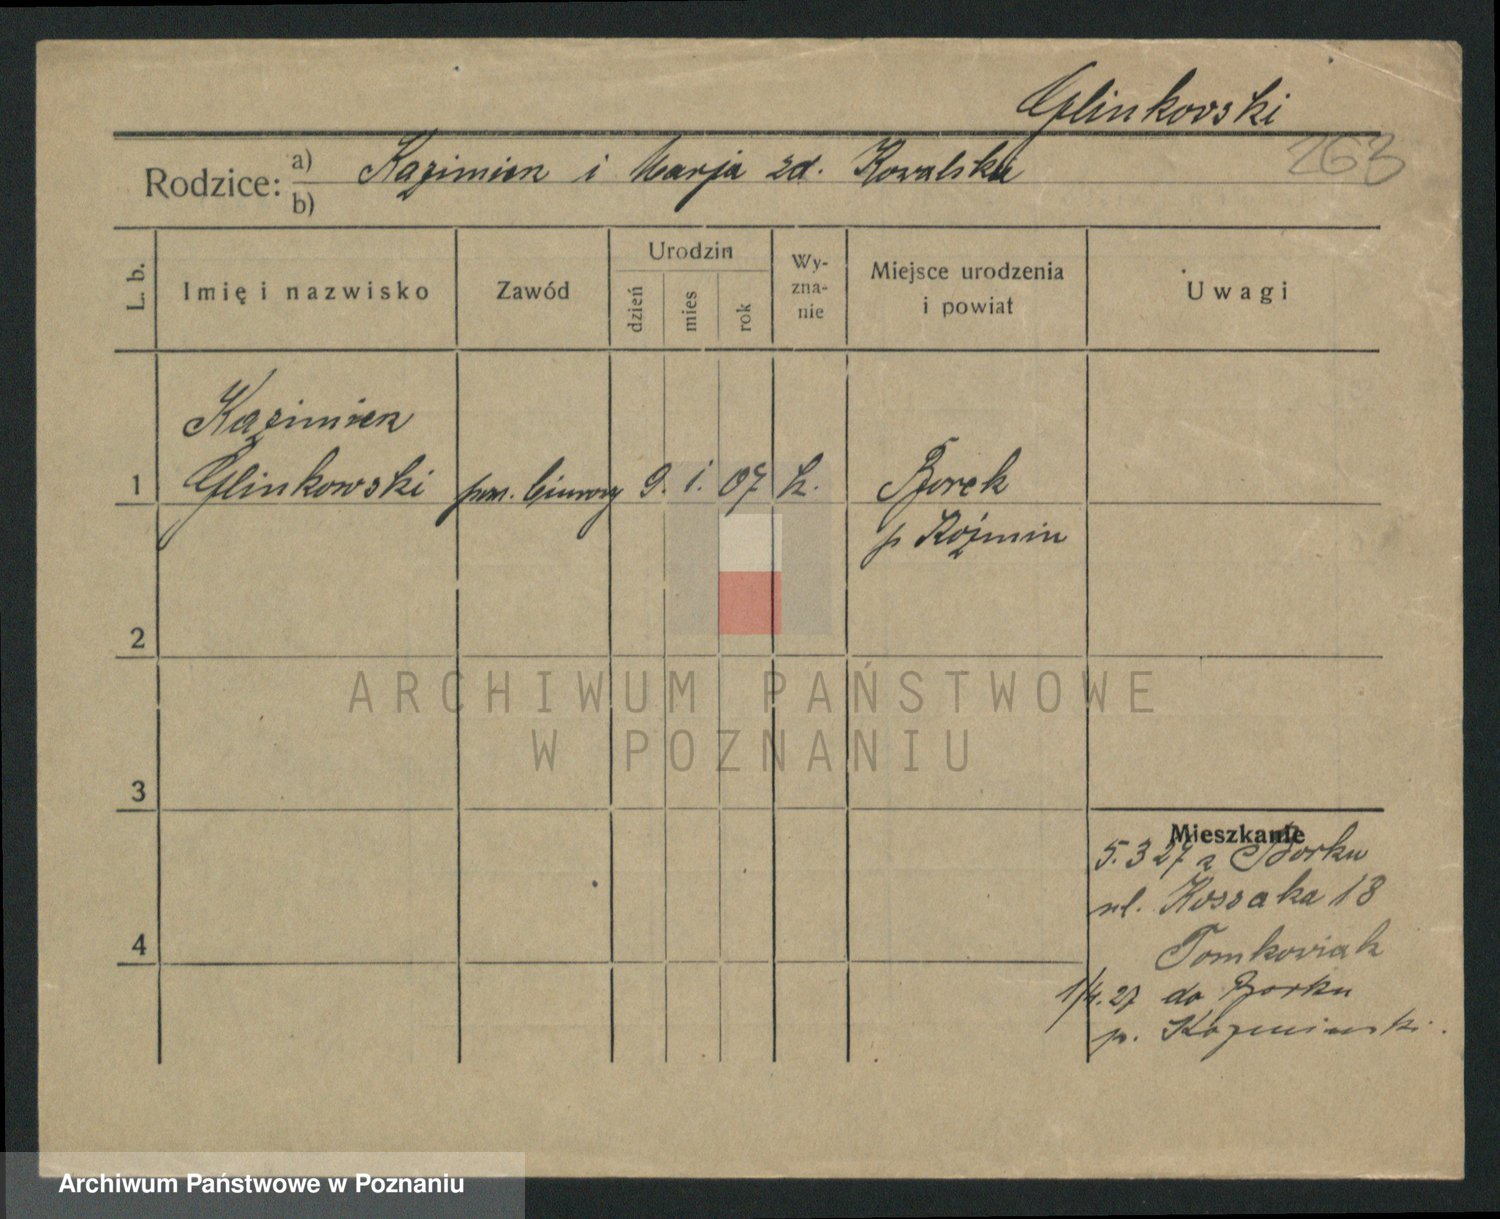 Glinkowski
263
Rodzice: a) Kazimierz i Marja zd. Kowalska
b)
L. b.
Imię i nazwisko
Zawód
Urodzin
dzień
mies
rok
Wy-
zna-
nie
Miejsce urodzenia
i powiat
Uwagi
Kazimierz
1 Glinkowski pom. biurowy 9. 1. 07 k. Borek
p Koźmin
2
3
4
Mieszkanie
5.3 27 z Borku
ul. Kossaka 18
Tomkowiak
1/4.27 do Borku
p. Koźmiński.
ARCHIWUM PAŃSTWOWE
W POZNANIU
Archiwum Państwowe w Poznaniu